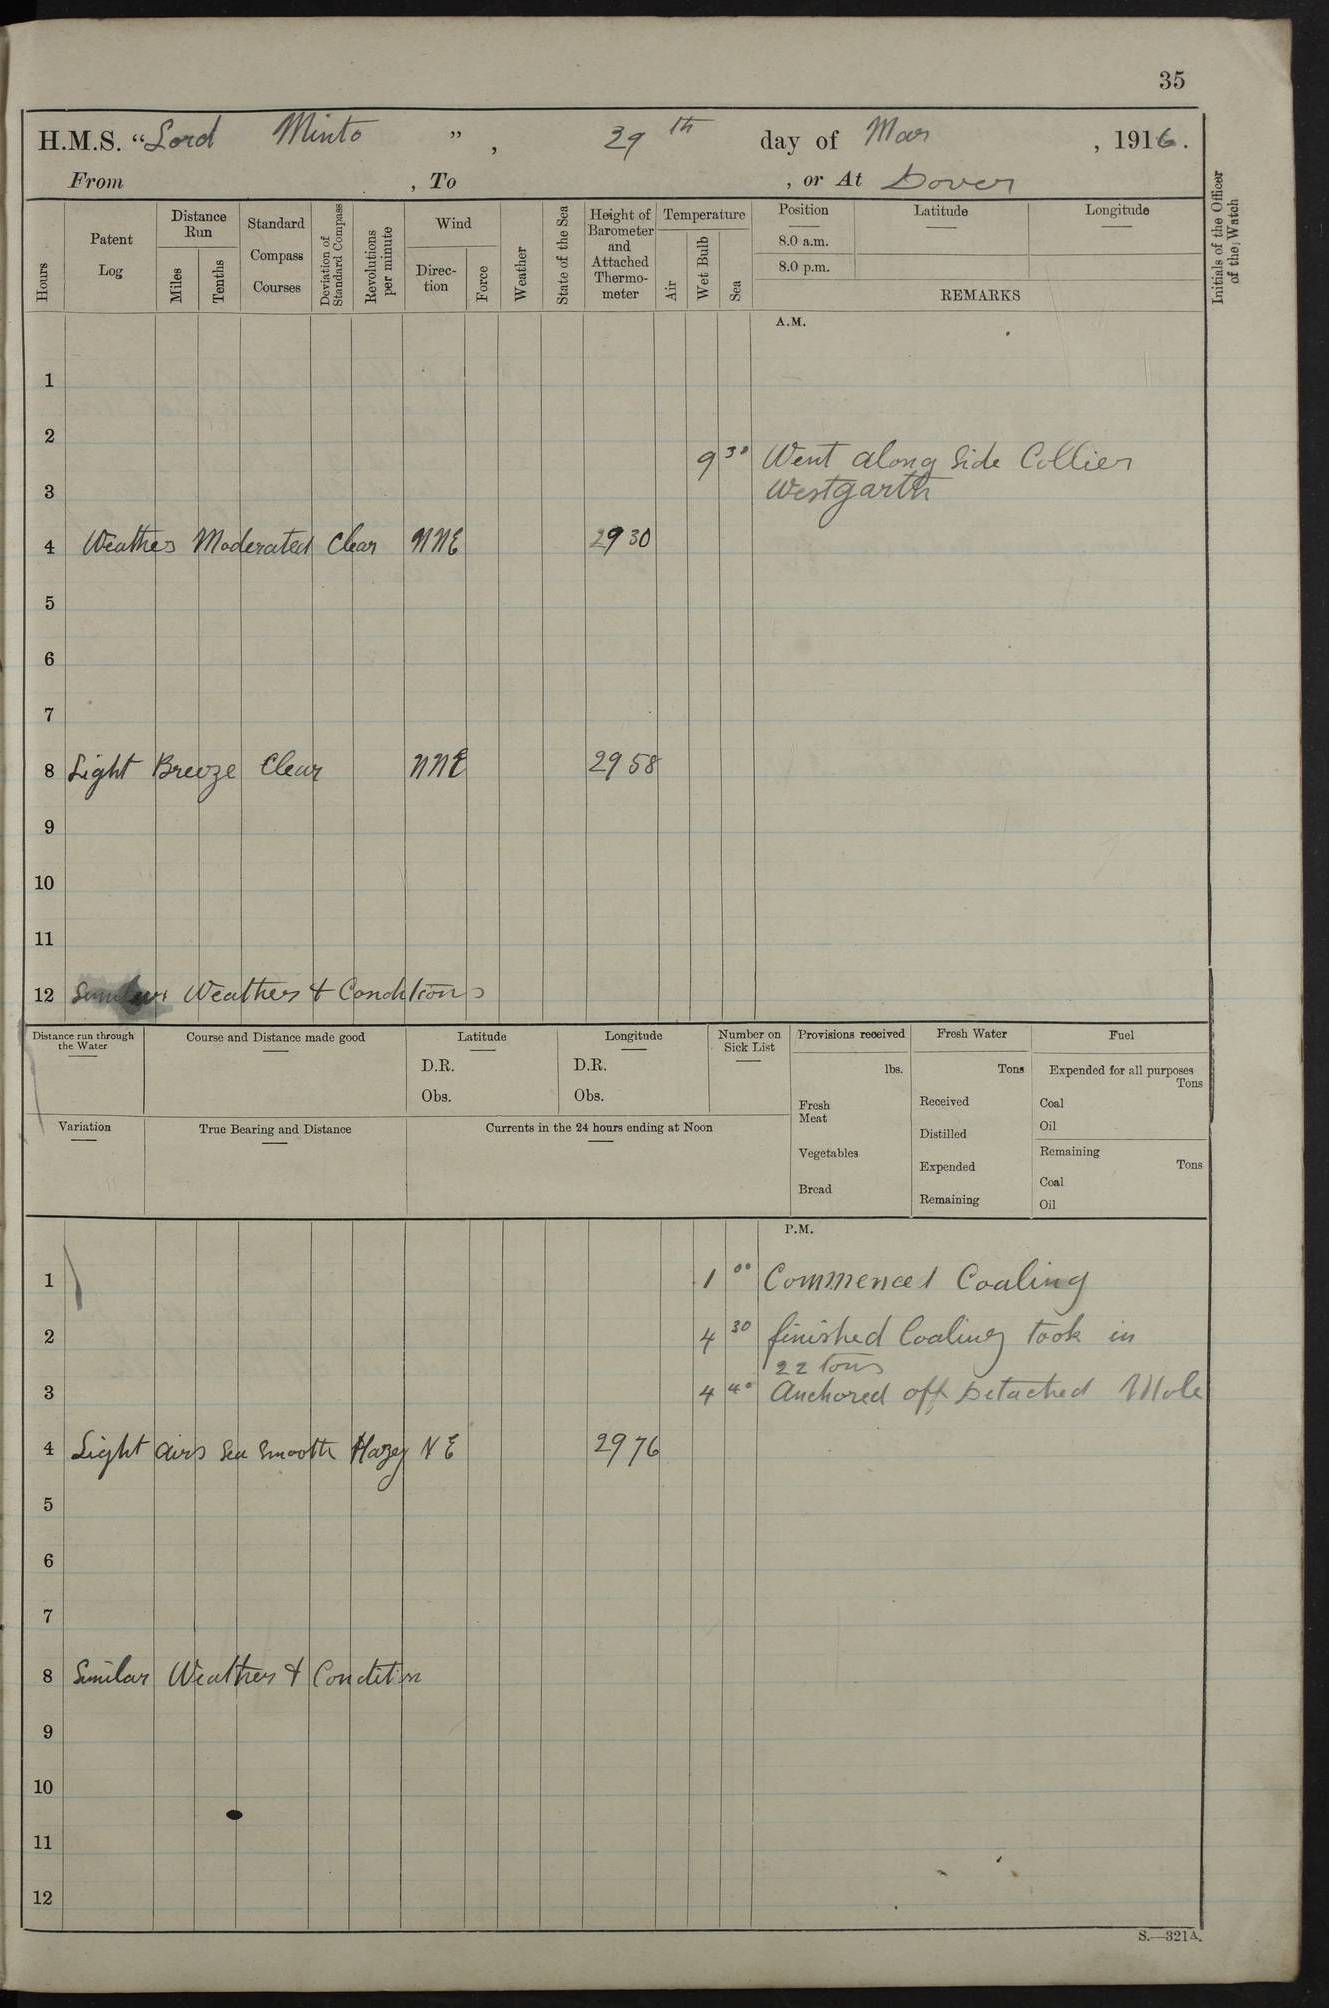 35
H.M.S. "Lord Minto", 29th day of Mar, 1916.
From , To , or At Dover
Hours
Patent Log
Distance Run
Miles
Tenths
Standard Compass Courses
Deviation of Standard Compass
Revolutions per minute
Wind
Direction
Force
Weather
State of the Sea
Height of Barometer and Attached Thermometer
Temperature
Air
Wet Bulb
Sea
Position Latitude Longitude
8.0 a.m.
8.0 p.m.
REMARKS
Initials of the Officer of the Watch
A.M.
1
2
9 30 Went along Side Collier
Westgarth
3
4 Weather Moderated Clear NNE 29 30
5
6
7
8 Light Breeze Clear NNE 29 58
9
10
11
12 Similar Weather & Conditions
Distance run through the Water
Course and Distance made good
Latitude
D.R.
Obs.
Longitude
D.R.
Obs.
Number on Sick List
Variation
True Bearing and Distance
Currents in the 24 hours ending at Noon
Provisions received
lbs.
Fresh Meat
Vegetables
Bread
Fresh Water
Tons
Received
Distilled
Expended
Remaining
Fuel
Expended for all purposes
Tons
Coal
Oil
Remaining
Tons
Coal
Oil
P.M.
1 1 00 Commenced Coaling
2 4 30 finished Coaling took in
22 Tons
3 4 40 Anchored off Detached Mole
4 Light airs Sea Smooth Hazey NE 29 76
5
6
7
8 Similar Weather & Condition
9
10
11
12
S.—321A.